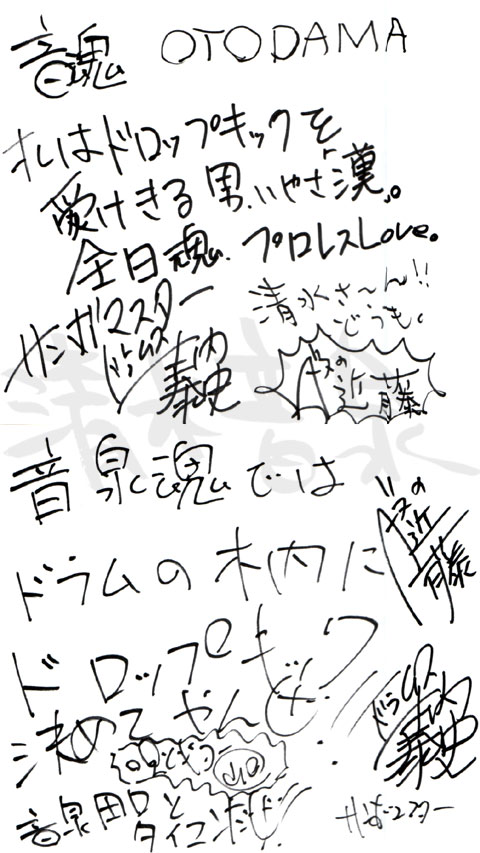 音魂 OTODAMA
オレはドロップキックを
受けきる男、いやさ「漢」。
全日魂、プロレスLove。
サンボマスター
ドラムス
木内
義史
清水さ〜ん!!
どうも。
ベースの
近藤
音泉魂では
ベースの
近藤
ドラムの木内に
ドロップキック
決めてやんぜ!!
義史
音泉
と
タイコンだぜ!
サンボマスター